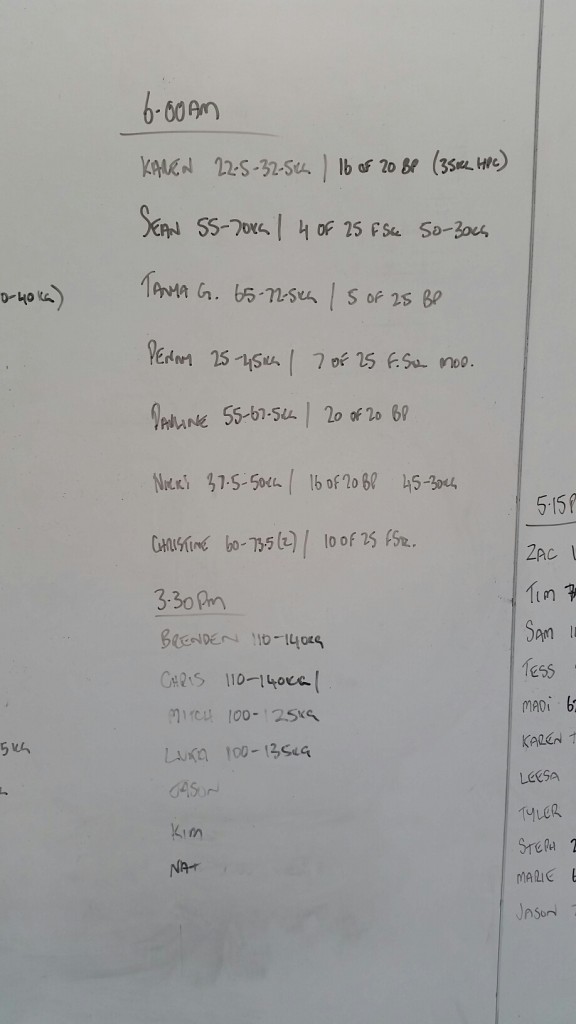 6-00AM
KAREN 22.5-32.5KG | 16 OF 20 BP (35KG HPC)
SEAN 55-70KG | 4 OF 25 FSQ 50-30KG
0-40KG)
TANIA G. 65-72.5KG | 5 OF 25 BP
PENNY 25-45KG | 7 OF 25 F.SQ MOD.
PAULINE 55-67.5KG | 20 OF 20 BP
NIKKI 37.5-50KG | 16 OF 20 BP 45-30KG
CHRISTINE 60-73.5(2) | 10 OF 25 FSQ.
3.30PM
BRENDEN 110-140KG
CHRIS 110-140KG |
MITCH 100-125KG
100-135KG
JASON
KIM
NAT
5KG
5.15P
ZAC 1
TIM
SAM 11
TESS
MADI 6
KAREN 7
LEESA
TYLER
STEPH 2
MARIE 6
JASON 7